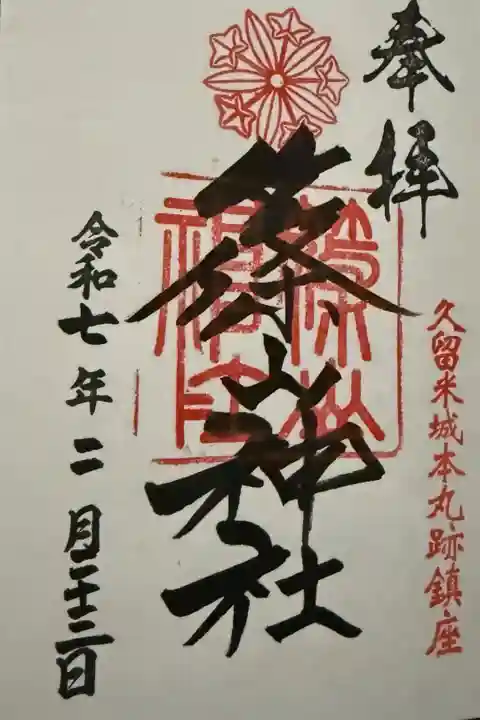 奉拝
久留米城本丸跡鎮座
篠山神社
篠山神社
令和七年二月二十三日